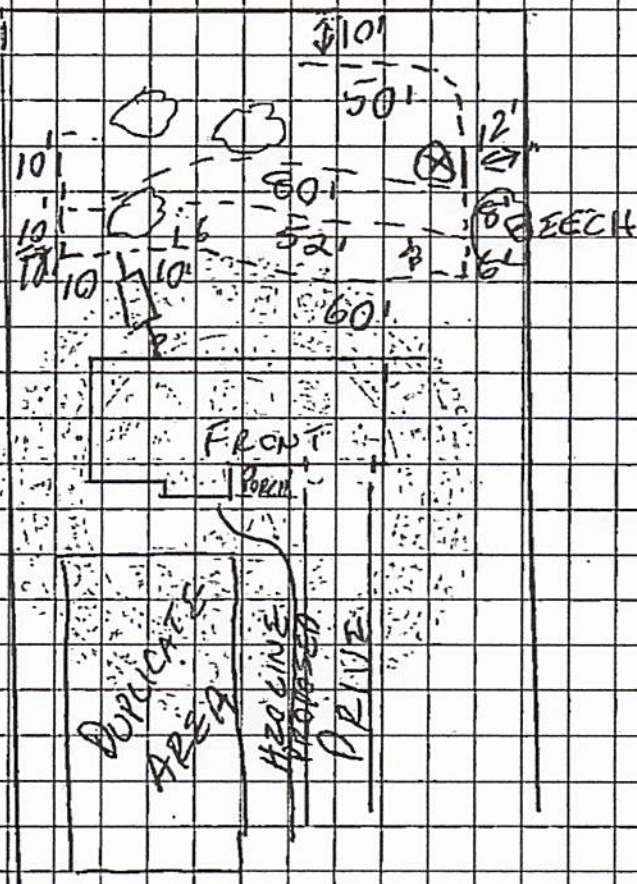 10'
50'
12'
10'
80'
8'
BEECH
10
52'
6'
10'
10
10'
60'
FRONT
PORCH
DUPLICATE
AREA
H2O LINE
PROPOSED
DRIVE